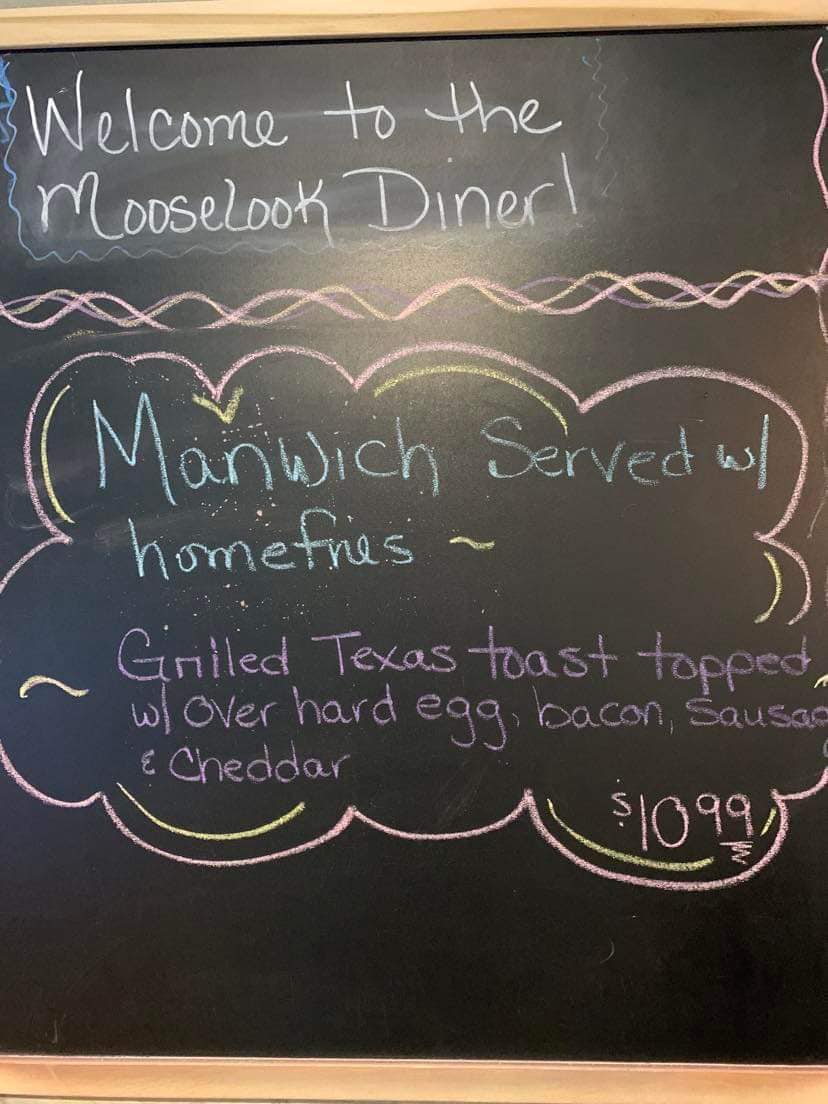 Welcome to the
MooseLook Diner!
Manwich Served w/
homefries ~
~ Grilled Texas toast topped
w/ over hard egg, bacon, Sausag
& Cheddar
$10.99